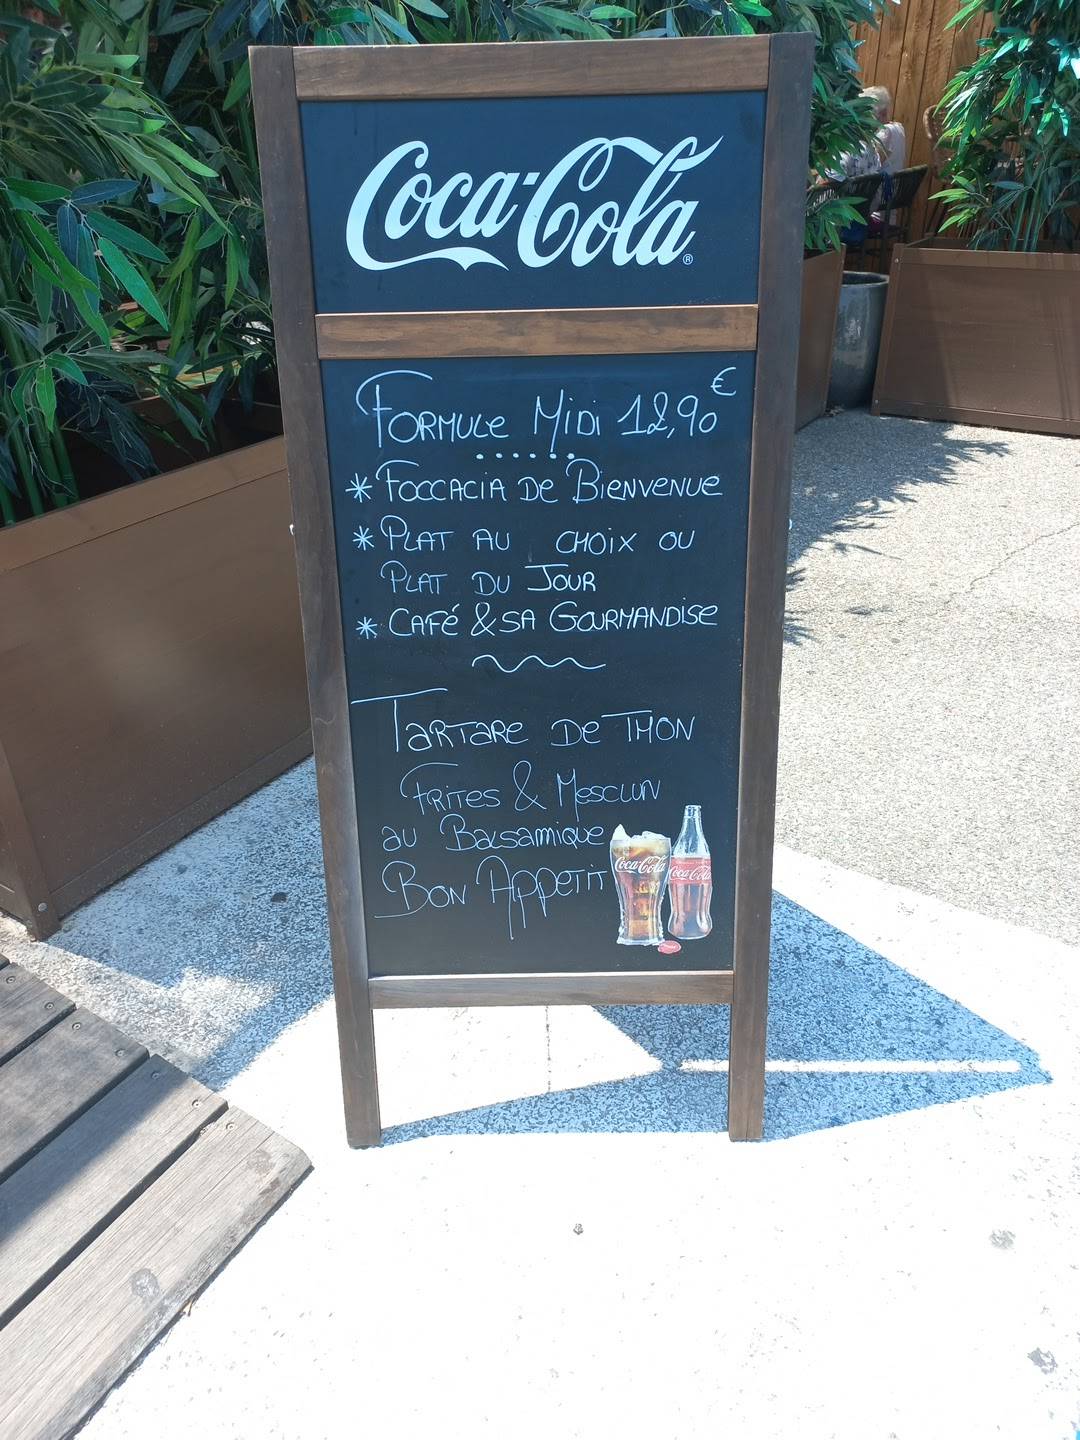 Coca-Cola®
FORMULE MIDI 12,90€
* FOCCACIA DE BIENVENUE
* PLAT AU CHOIX OU
PLAT DU JOUR
* CAFÉ & SA GOURMANDISE
TARTARE DE THON
FRITES & MESCLUN
AU BALSAMIQUE
BON APPETIT
Coca-Cola
Coca-Cola